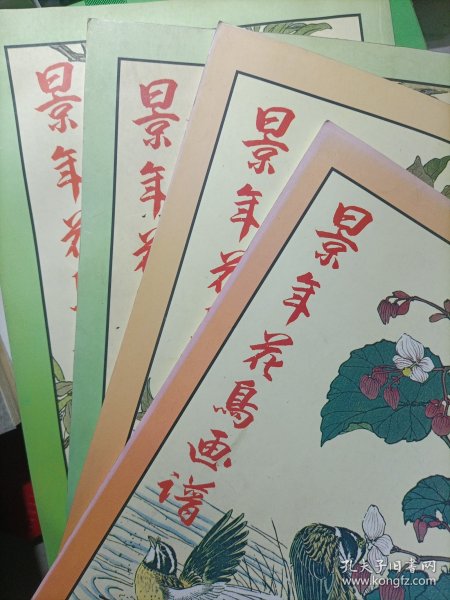 景年花
景年花
景年花
景年花鳥画谱
孔夫子旧书网
www.kongfz.com